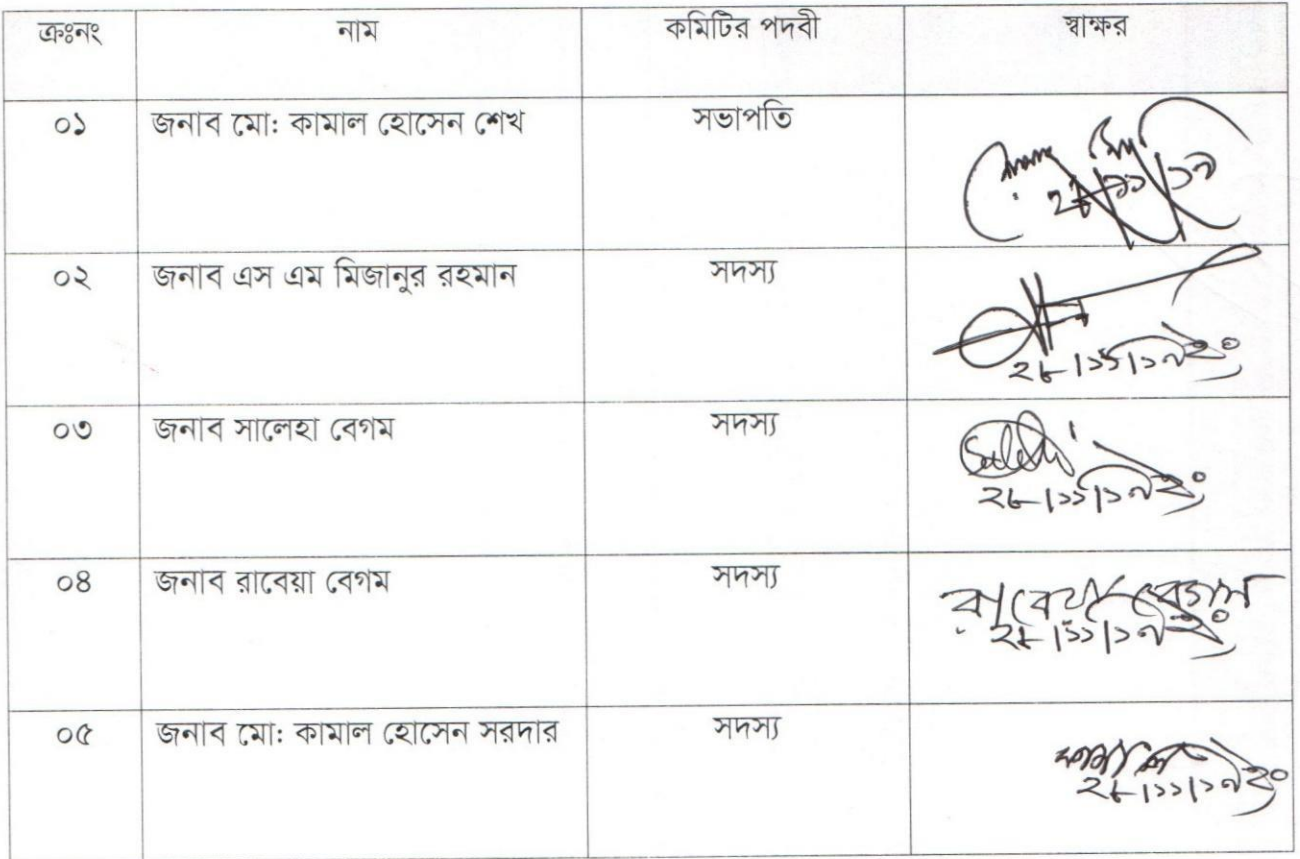 ক্রঃনং নাম কমিটির পদবী স্বাক্ষর
০১ জনাব মো: কামাল হোসেন শেখ সভাপতি
২৮/১১/১৯
০২ জনাব এস এম মিজানুর রহমান সদস্য
২৮/১১/১৯ইং
০৩ জনাব সালেহা বেগম সদস্য
২৮/১১/১৯ইং
০৪ জনাব রাবেয়া বেগম সদস্য রাবেয়া বেগম
২৮/১১/১৯ইং
০৫ জনাব মো: কামাল হোসেন সরদার সদস্য কামাল
২৮/১১/১৯ইং